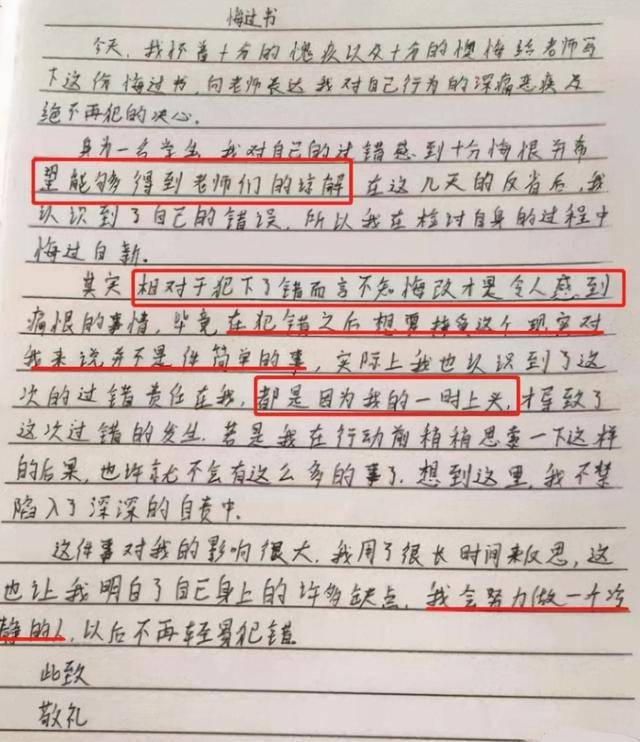 悔过书
今天,我怀着十分的愧疚以及十分的懊悔给老师写
下这份悔过书,向老师表达我对自己行为的深痛恶疾及
绝不再犯的决心。
身为一名学生,我对自己的过错感到十分悔恨并希
望能够得到老师们的谅解 在这几天的反省后,我
认识到了自己的错误,所以我在检讨自身的过程中
悔过自新。
其实相对于犯下了错而言不知悔改才是令人感到
痛恨的事情,毕竟在犯错之后想要接受这个现实对
我来说并不是件简单的事,实际上我也认识到了这
次的过错责任在我,都是因为我的一时上头,才导致了
这次过错的发生.若是我在行动前稍稍思索一下这样
的后果,也许就不会有这么多的事了.想到这里,我不禁
陷入了深深的自责中.
这件事对我的影响很大.我用了很长时间来反思,这
也让我明白了自己身上的许多缺点,我会努力做一个冷
静的人,以后不再轻易犯错.
此致
敬礼